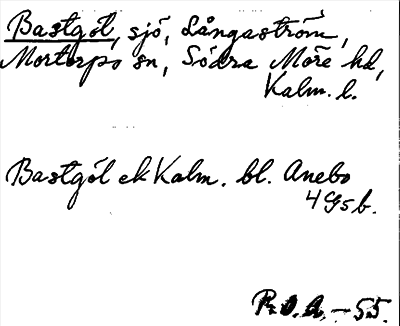 Bastgöl, sjö, Långaström,
Mortorps sn, Södra Möre hd,
Kalm. l.
Bastgöl ek Kalm. bl. Anebo
4 g5 b.
P. O. A. – 55.